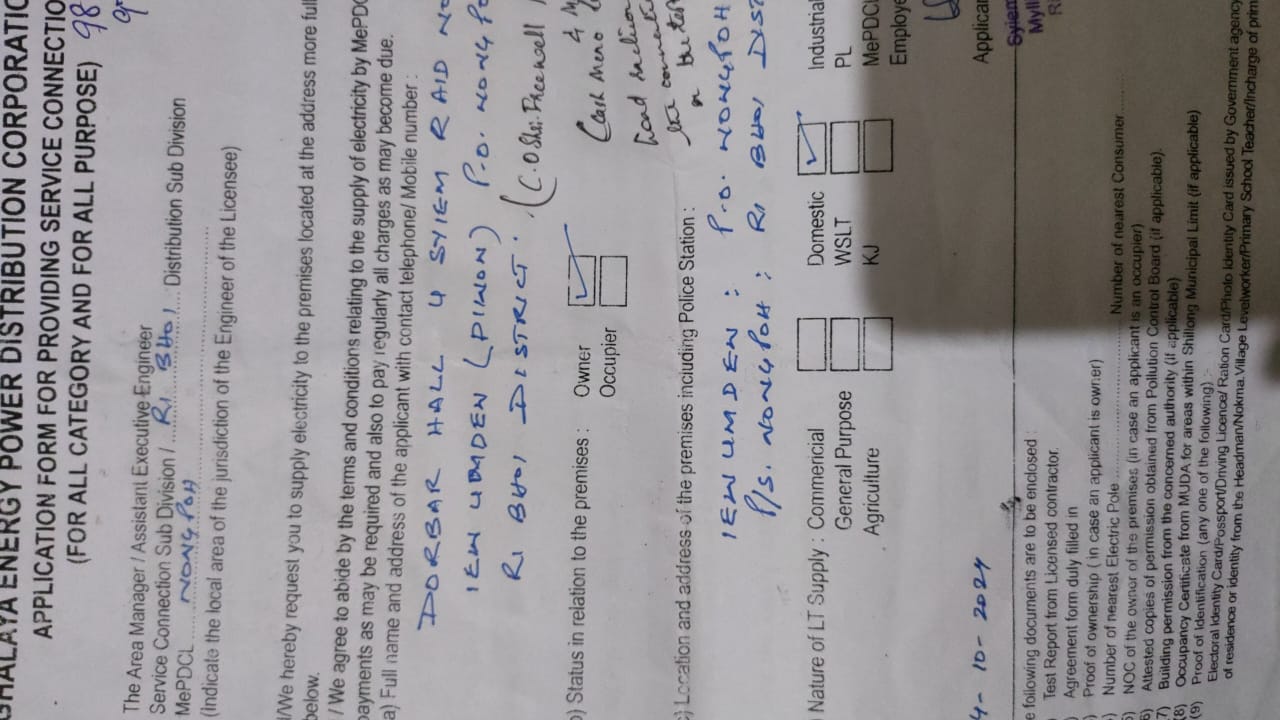 GHALAYA ENERGY POWER DISTRIBUTION CORPORATIO
APPLICATION FORM FOR PROVIDING SERVICE CONNECTIO
(FOR ALL CATEGORY AND FOR ALL PURPOSE) 98
The Area Manager / Assistant Executive Engineer
Service Connection Sub Division / RI BHOI Distribution Sub Division
MePDCL NONGPOH
(Indicate the local area of the jurisdiction of the Engineer of the Licensee)
I/We hereby request you to supply electricity to the premises located at the address more full
below.
/ We agree to abide by the terms and conditions relating to the supply of electricity by MePDC
payments as may be required and also to pay regularly all charges as may become due.
a) Full name and address of the applicant with contact telephone/ Mobile number :
DORBAR HALL 4 SYIEM RAID NO
IEW UMDEN (DIWON) P.O. NONGPO
RI BHOI DISTRICT.
b) Status in relation to the premises : Owner
Occupier
Load
c) Location and address of the premises including Police Station :
IEW UMDEN : P.O. NONGPOH
P/S. NONGPOH : RI BHOI DIST
) Nature of LT Supply : Commericial Domestic Industrial
General Purpose WSLT PL
Agriculture KJ MePDCL
Employe
4-10-2024
Applican
Syiem
Mylli
RI
e following documents are to be enclosed :
) Test Report from Licensed contractor.
Agreement form duly filled in
) Proof of ownership ( in case an applicant is owner)
) Number of nearest Electric Pole Number of nearest Consumer
) NOC of the owner of the premises (in case an applicant is an occupier)
6) Attested copies of permission obtained from Pollution Control Board (if applicable).
7) Building permission from the concerned authority (if applicable)
(8) Occupancy Certificate from MUDA for areas within Shillong Municipal Limit (if applicable)
(9) Proof of Identification (any one of the following)
Electoral Identity Card/Possport/Driving Licence/ Ration Card/Photo Identity Card issued by Government agency
of residence or identity from the Headman/Nokma.Village Levelworker/Primary School Teacher/Incharge of prim